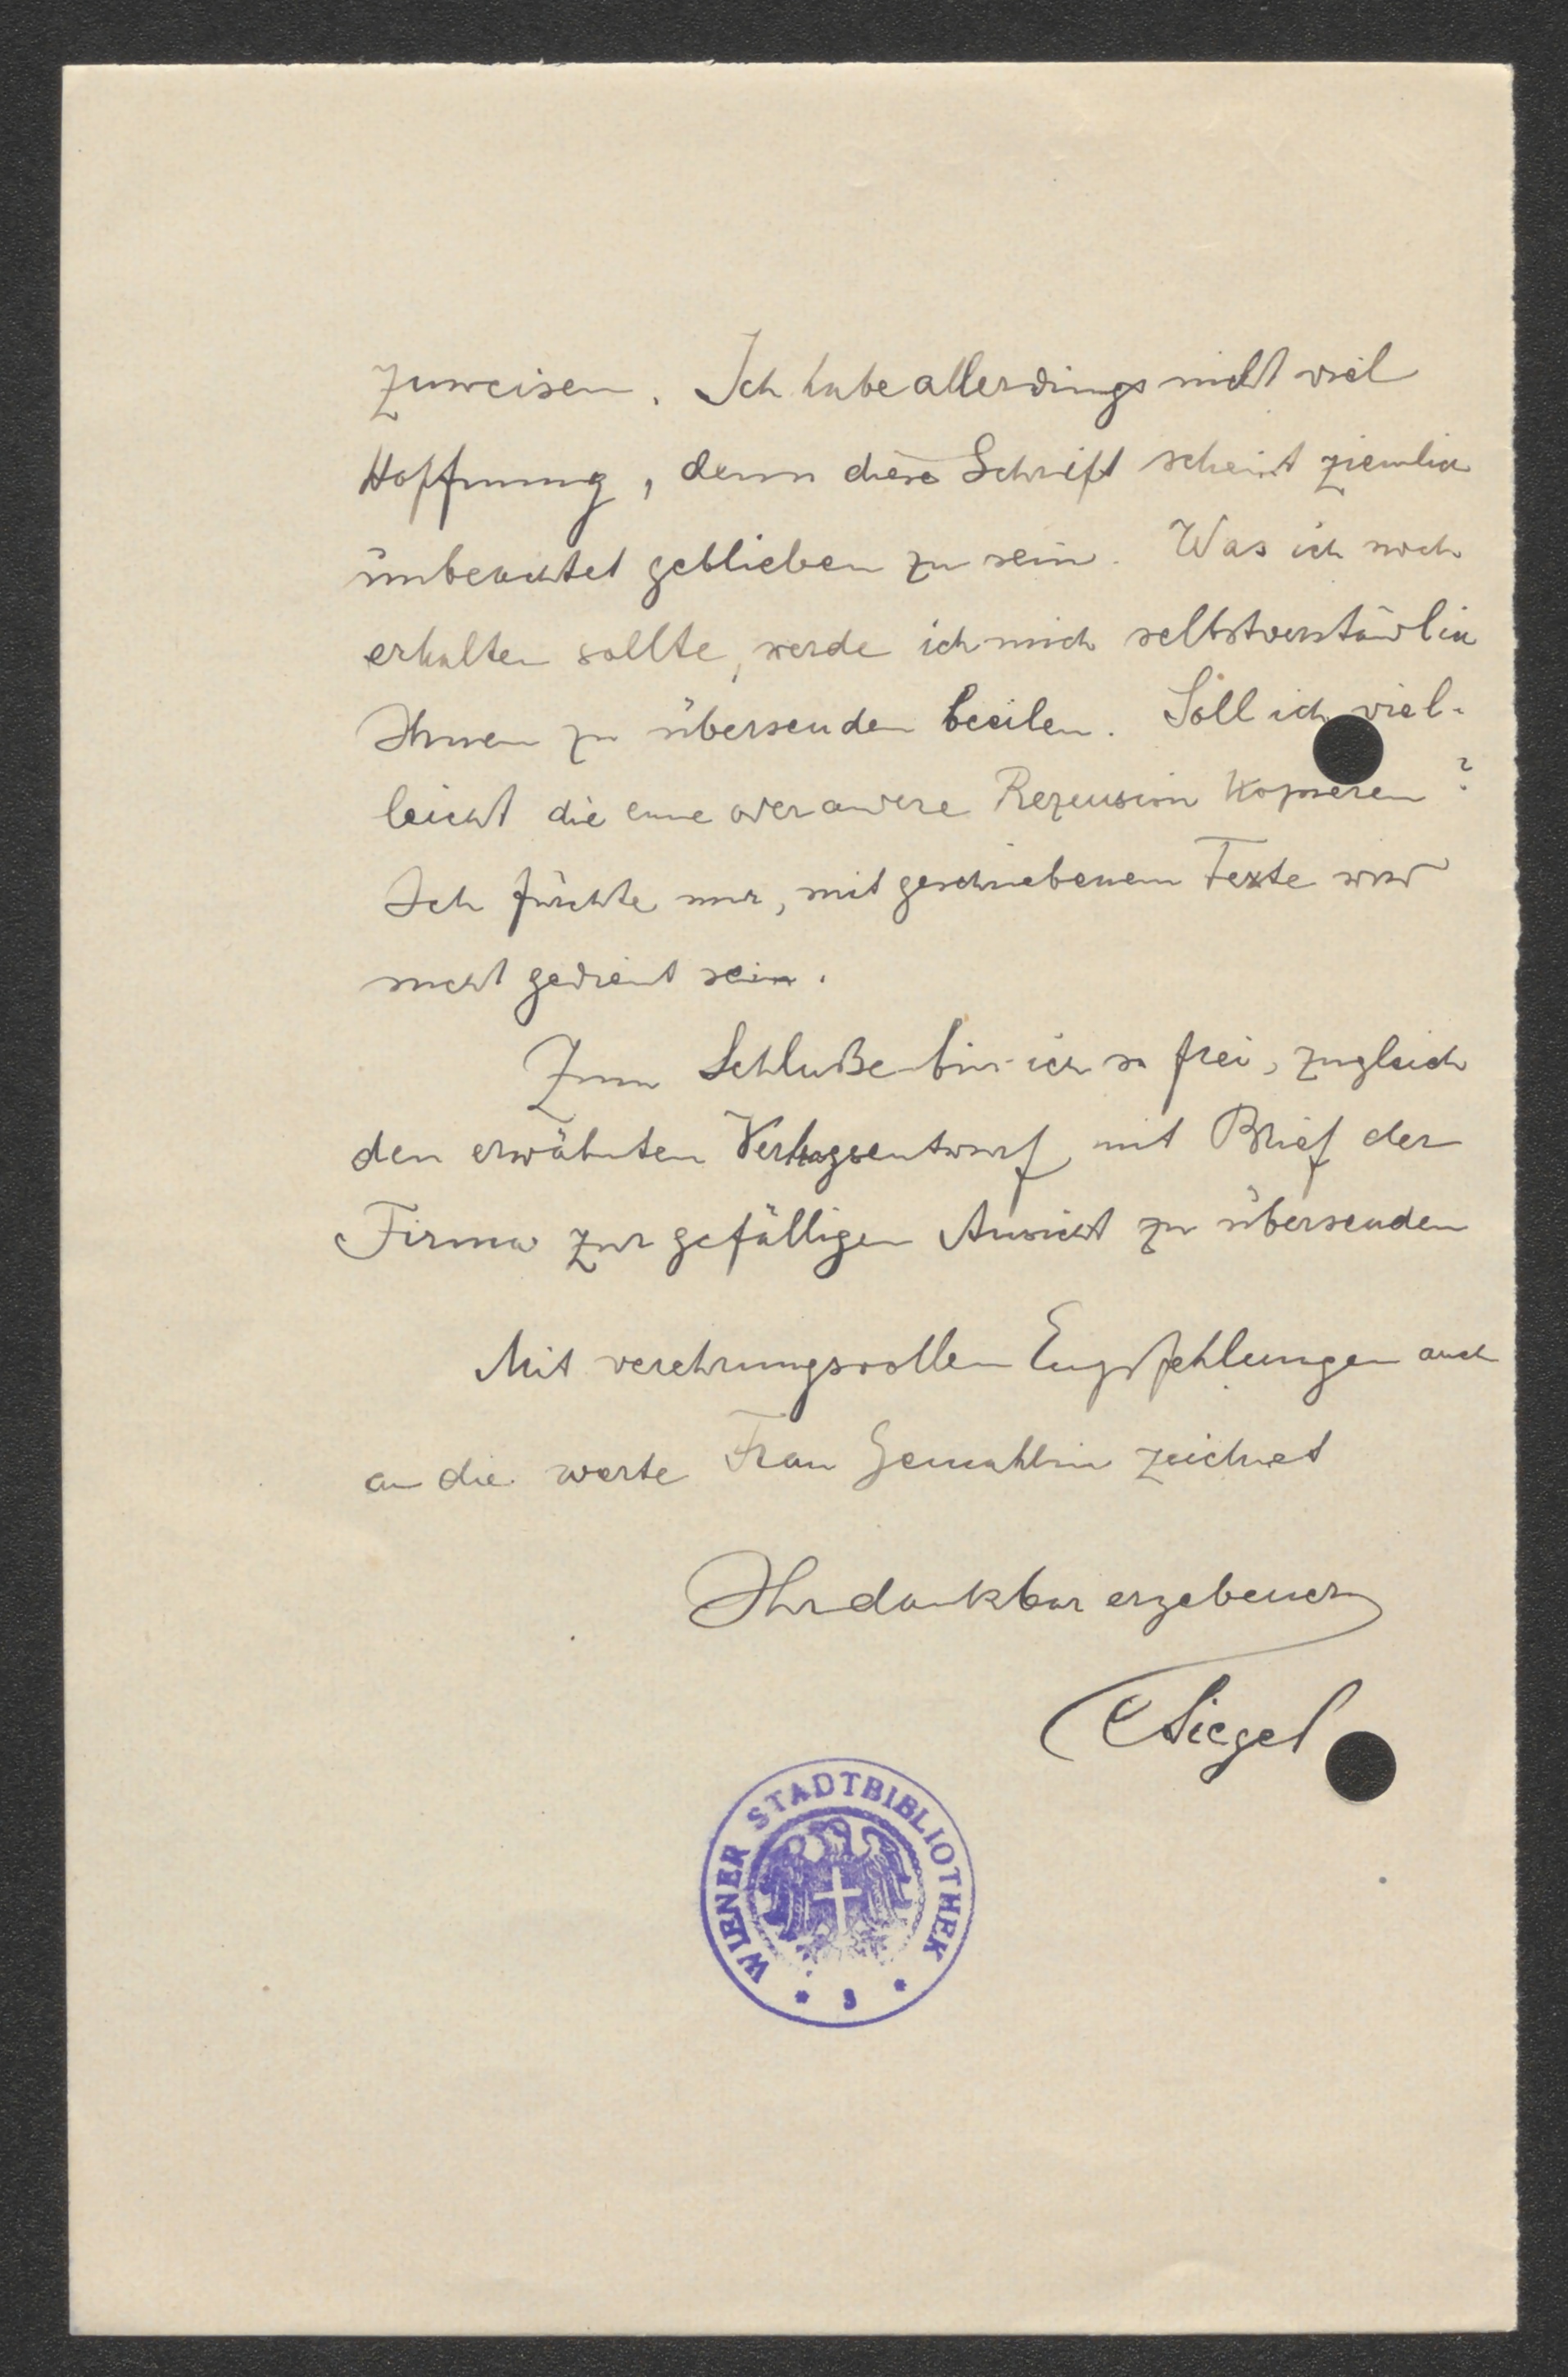 zuweisen. Ich habe allerdings nicht viel
Hoffnung, denn diese Schrift scheint ziemlich
unbeachtet geblieben zu sein. Was ich noch
erhalten sollte, werde ich mich selbstverständlich
Ihnen zu übersenden beeilen. Soll ich viel-
leicht die eine oder andere Rezension kopieren?
Ich fürchte nur, mit geschriebenem Texte wird
nicht gedient sein.
Zum Schluße bin ich so frei, zugleich
den erwähnten Vertragsentwurf mit Brief der
Firma zur gefälligen Ansicht zu übersenden
Mit verehrungsvollen Empfehlungen auch
an die werte Frau Gemahlin zeichnet
Ihr dankbar ergebener
CSiegel
WIENER STADTBIBLIOTHEK
* 3 *